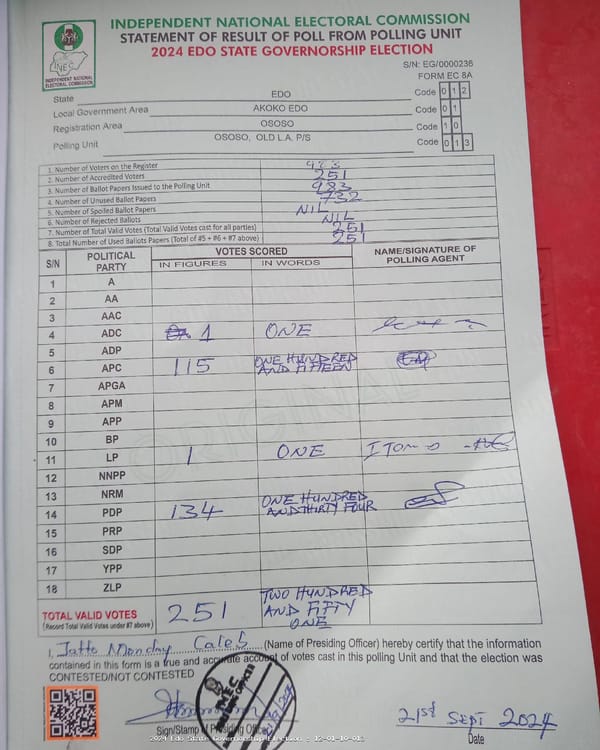 INDEPENDENT NATIONAL ELECTORAL COMMISSION
STATEMENT OF RESULT OF POLL FROM POLLING UNIT
2024 EDO STATE GOVERNORSHIP ELECTION
INEC
INDEPENDENT NATIONAL ELECTORAL COMMISSION
S/N: EG/0000236
FORM EC 8A
State EDO Code 0 1 2
Local Government Area AKOKO EDO Code 0 1
Registration Area OSOSO Code 1 0
Polling Unit OSOSO, OLD L.A. P/S Code 0 1 3
1. Number of Voters on the Register 983
2. Number of Accredited Voters 251
3. Number of Ballot Papers Issued to the Polling Unit 983
4. Number of Unused Ballot Papers 732
5. Number of Spoiled Ballot Papers NIL
6. Number of Rejected Ballots NIL
7. Number of Total Valid Votes (Total Valid Votes cast for all parties) 251
8. Total Number of Used Ballots Papers (Total of #5 + #6 + #7 above) 251
S/N POLITICAL PARTY VOTES SCORED NAME/SIGNATURE OF POLLING AGENT
IN FIGURES IN WORDS
1 A
2 AA
3 AAC
4 ADC 1 ONE
5 ADP
6 APC 115 ONE HUNDRED AND FIFTEEN
7 APGA
8 APM
9 APP
10 BP
11 LP 1 ONE
12 NNPP
13 NRM
14 PDP 134 ONE HUNDRED AND THIRTY FOUR
15 PRP
16 SDP
17 YPP
18 ZLP
ORIGINAL
TOTAL VALID VOTES 251 TWO HUNDRED AND FIFTY ONE
(Record Total Valid Votes under #7 above)
I, Jatto Monday Caleb (Name of Presiding Officer) hereby certify that the information
contained in this form is a true and accurate account of votes cast in this polling Unit and that the election was
CONTESTED/NOT CONTESTED
INEC
21st SEPT 2024
Sign/Stamp of Presiding Officer Date
2024 Edo State Governorship Election - 12-01-10-013